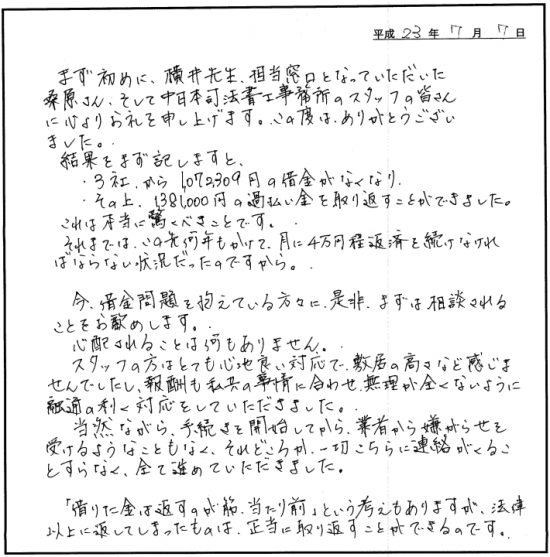 平成 23 年 7 月 7 日
まず初めに、横井先生、担当窓口となっていただいた
桑原さん、そして中日本司法書士事務所のスタッフの皆さん
に心よりお礼を申し上げます。この度は、ありがとうござい
ました。
結果をまず記しますと、
・3社、から 1,072,309円の借金がなくなり、
・その上、1,381,000円の過払い金を取り返すことができました。
これは本当に驚くべきことです。
それまでは、この先何年もかけて、月に4万円程返済を続けなけれ
ばならない状況だったのですから。
今、借金問題を抱えている方々に、是非、まずは相談される
ことをお勧めします。
心配されることは何もありません。
スタッフの方はとても心地良い対応で、敷居の高さなど感じま
せんでしたし、報酬も私共の事情に合わせ、無理が全くないように
融通の利く対応をしていただきました。
当然ながら、手続きを開始してから、業者から嫌がらせを
受けるようなこともなく、それどころか、一切こちらに連絡がくるこ
とすらなく、全て進めていただきました。
「借りた金は返すのが筋、当たり前」という考えもありますが、法律
以上に返してしまったものは、正当に取り返すことができるのです。